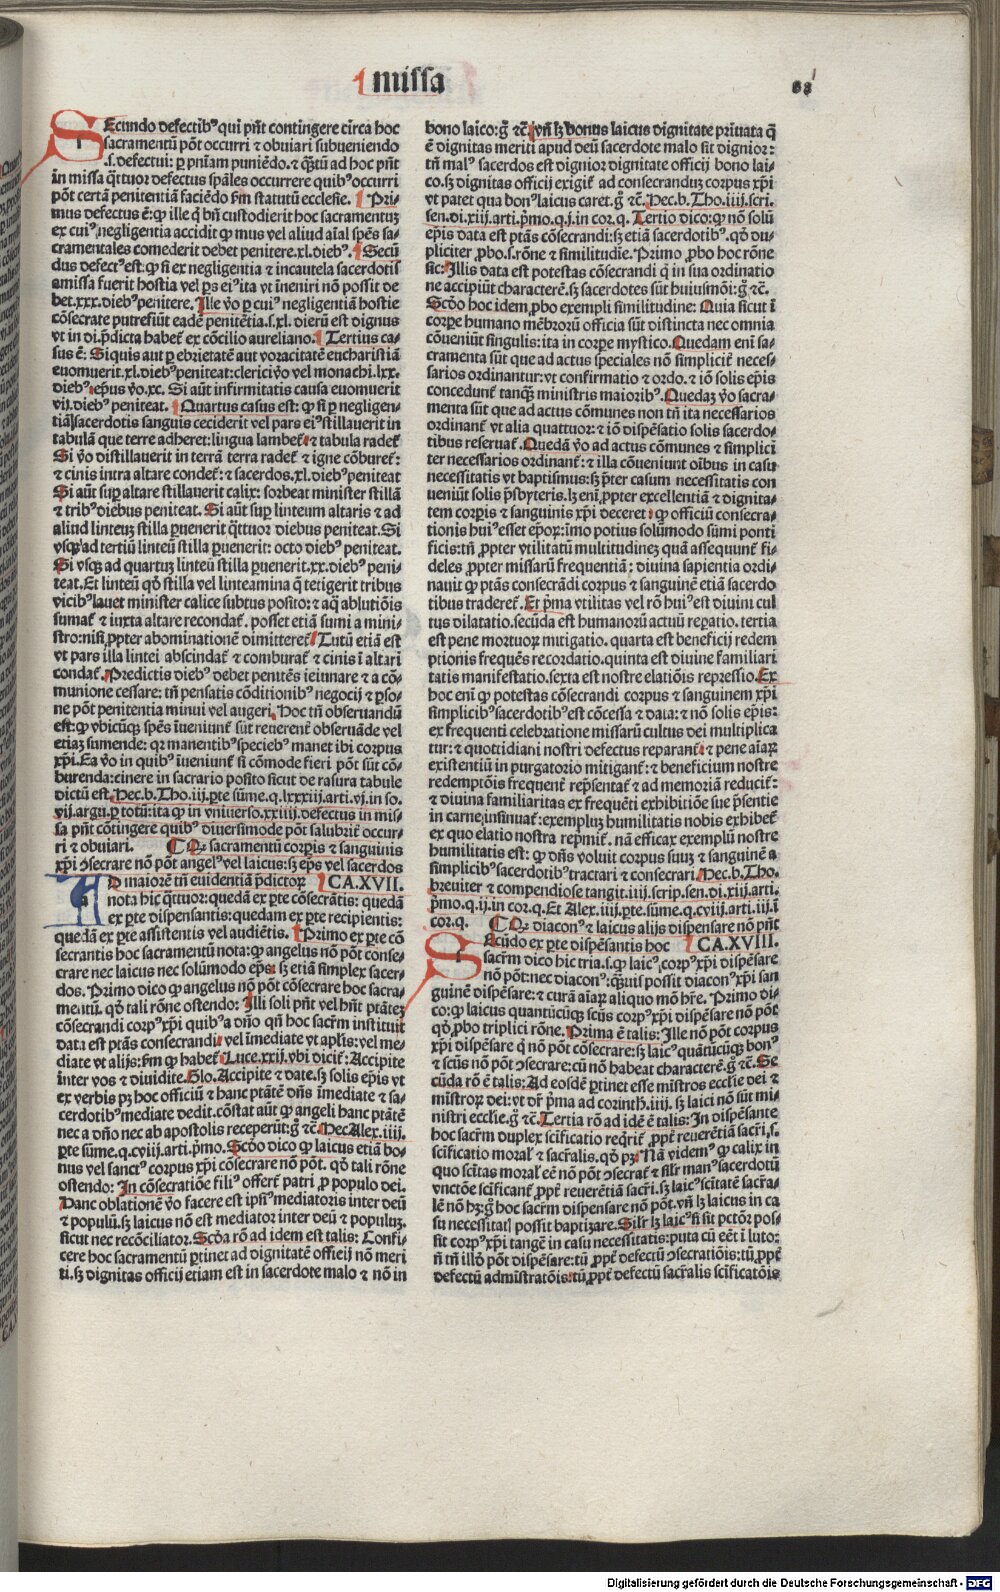 ¶ missa
68
SEcundo defectibꝰ qui pn̄t contingere circa hoc
sacramentū põt occurri ⁊ obuiari subueniendo
.s. defectui: ꝑ pn̄iam puniēdo. ⁊ q̄tū ad hoc pn̄t
in missa q̄ttuor defectus spāles occurrere quibꝰ occurri
põt certā penitentiā faciēdo ẜm statutū ecclesie. ¶ Pri-
mus defectus ē: ꝙ ille q̄ bn̄ custodierit hoc sacramentuꝫ
ex cuiꝰ negligentia accidit ꝙ mus vel aliud aīal spēs sa-
cramentales comederit debet penitere .xl. diebꝰ. ¶ Secū
dus defectꝰ est: ꝙ si ex negligentia ⁊ incautela sacerdotis
amissa fuerit hostia vel ꝑs eiꝰ ita vt īneniri nō possit de
bet .xxx. diebꝰ penitere. Ille ṽo ꝑ cuiꝰ negligentiā hostie
cōsecrate putrefiūt eadē penitētia .s. xl. dierū est dignus
vt in di. p̄dicta habet᷑ ex cōcilio aureliano. ¶ Tertius ca-
sus ē: Siquis aut ꝑ ebrietatē aut voracitatē eucharistiā
euomuerit .xl. diebꝰ peniteat: clerici ṽo vel monachi .lxx.
diebꝰ: ep̄us ṽo .xc. Si aūt infirmitatis causa euomuerit
vij. diebꝰ peniteat. ¶ Quartus casus est: ꝙ si ꝑ negligen-
tiā sacerdotis sanguis ceciderit vel pars eiꝰ stillauerit in
tabulā que terre adheret: lingua lambet᷑ ⁊ tabula radet᷑
Si ṽo distillauerit in terrā terra radet᷑ ⁊ igne cōburet᷑:
⁊ cinis intra altare condet᷑: ⁊ sacerdos .xl. diebꝰ peniteat
Si aūt suꝑ altare stillauerit calix: sorbeat minister stillā
⁊ tribꝰ diebus peniteat. Si aūt suꝑ linteum altaris ⁊ ad
aliud linteuꝫ stilla ꝑuenerit q̄ttuor diebus peniteat. Si
vsqꝫ ad tertiū linteū stilla ꝑuenerit: octo diebꝰ peniteat.
Si vsqꝫ ad quartuꝫ linteū stilla ꝑuenerit .xx. diebꝰ peni-
teat. Et linteū qd̄ stilla vel linteamina q̄ tetigerit tribus
vicibꝰ lauet minister calice subtus posito: ⁊ aq̄ ablutiōis
sumat᷑ ⁊ iuxta altare recondat᷑. posset etiā sumi a mini-
stro: nisi ꝓpter abominationē dimitteret᷑. Tutū etiā est
vt pars illa lintei abscindat᷑ ⁊ comburat᷑ ⁊ cinis ī altari
condat᷑. Predictis diebꝰ debet penitēs ieiunare ⁊ a cō-
munione cessare: tn̄ pensatis cōditionibꝰ negocij ⁊ ꝑso-
ne põt penitentia minui vel augeri. Hoc tn̄ obseruandū
est: ꝙ vbicūqꝫ spēs īueniunt᷑ sūt reuerent᷑ obseruāde vel
etiaꝫ sumende: qꝛ manentibꝰ speciebꝰ manet ibi corpus
xp̄i. Ea ṽo in quibꝰ īueniunt᷑ si cōmode fieri põt sūt cō-
burenda: cinere in sacrario posito sicut de rasura tabule
dictū est. Hec .b. Tho. iij. ꝑte sūme .q. lxxxiij. arti. vj. in so.
vij. argu. ꝑ totū: ita ꝙ in vniuerso .xxiiij. defectus in mis-
sa pn̄t cōtingere quibꝰ diuersimode põt salubrit᷑ occur-
ri ⁊ obuiari. ¶ Qꝛ sacramentū corꝑis ⁊ sanguinis
xp̄i ꝯsecrare nō põt angelꝰ vel laicus: sꝫ ep̄s vel sacerdos
AD maiorē tn̄ euidentiā p̄dictoꝝ ¶ CA. XVII.
nota hic q̄ttuor: quedā ex ꝑte cōsecrātis: quedā
ex ꝑte dispensantis: quedam ex ꝑte recipientis:
quedā ex ꝑte assistentis vel audiētis. ¶ Primo ex ꝑte cō
secrantis hoc sacramentū nota: ꝙ angelus nō põt conse-
crare nec laicus nec solūmodo ep̄s: sꝫ etiā simplex sacer-
dos. Primo dico ꝙ angelus nō põt cōsecrare hoc sacra-
mentū. qd̄ tali rōne ostendo: Illi soli pn̄t vel hn̄t ptātez
cōsecrandi corpꝰ xp̄i quibꝰ a dn̄o qn̄ hoc sacr̄m instituit
data est ptās consecrandi: vel īmediate vt apl̄is: vel me-
diate vt alijs: ẜm ꝙ habet᷑ Luce .xxij. vbi dicit᷑: Accipite
inter vos ⁊ diuidite. Glo. Accipite ⁊ date. sꝫ solis ep̄is vt
ex verbis pꝫ hoc officiū ⁊ hanc ptātē dn̄s īmediate ⁊ sa-
cerdotibꝰ mediate dedit. cōstat aūt ꝙ angeli hanc ptātē
nec a dn̄o nec ab apostolis receperūt: g̊ ⁊c̄. Hec Alex. iiij.
ꝑte sūme .q. cviij. arti. p̄mo. Scd̄o dico ꝙ laicus etiā bo-
nus vel sanctꝰ corpus xp̄i cōsecrare nō põt. qd̄ tali rōne
ostendo: In cōsecratiōe filiꝰ offert᷑ patri ꝓ populo dei.
Hanc oblationē ṽo facere est ipsiꝰ mediatoris inter deū
⁊ populū. sꝫ laicus nō est mediator inter deū ⁊ populuꝫ.
sicut nec recōciliator. Scd̄a rō ad idem est talis: Confi-
cere hoc sacramentū ꝑtinet ad dignitatē officij nō meri
ti. sꝫ dignitas officij etiam est in sacerdote malo ⁊ nō in
bono laico: g̊ ⁊c̄. vn̄ lꝫ bonus laicus dignitate priuata q̄
ē dignitas meriti apud deū sacerdote malo sit dignior:
tn̄ malꝰ sacerdos est dignior dignitate officij bono lai-
co. sꝫ dignitas officij exigit᷑ ad consecranduꝫ corpus xp̄i
vt patet qua bonꝰ laicus caret. g̊ ⁊c̄. Hec .b. Tho. iiij. scri.
sen. di. xiij. arti. p̄mo. q. j. in cor. q. Tertio dico: ꝙ nō solū
ep̄is data est ptās cōsecrandi: sꝫ etiā sacerdotibꝰ. qd̄ du-
pliciter ꝓbo .s. rōne ⁊ similitudie. Primo ꝓbo hoc rōne
sic: Illis data est potestas cōsecrandi q̄ in sua ordinatio
ne accipiūt characterē. sꝫ sacerdotes sūt huiusmōi: g̊ ⁊c̄.
Scd̄o hoc idem ꝓbo exempli similitudine: Quia sicut ī
corꝑe humano mēbroꝝ officia sūt distincta nec omnia
cōueniūt singulis: ita in corꝑe mystico. Quedam enī sa-
cramenta sūt que ad actus speciales nō simplicit᷑ neces-
sarios ordinantur: vt confirmatio ⁊ ordo. ⁊ iō solis ep̄is
concedunt᷑ tanqꝫ ministris maioribꝰ. Quedaꝫ ṽo sacra-
menta sūt que ad actus cōmunes non tn̄ ita necessarios
ordinant᷑ vt alia quattuor: ⁊ iō dispēsatio solis sacerdo-
tibus reseruat᷑. Quedā ṽo ad actus cōmunes ⁊ simplici
ter necessarios ordinant᷑: ⁊ illa cōueniunt oībus in casu
necessitatis vt baptismus: sꝫ p̄ter casum necessitatis con
ueniūt solis p̄sbyteris. lꝫ enī ꝓpter excellentiā ⁊ dignita-
tem corꝑis ⁊ sanguinis xp̄i deceret: ꝙ officiū consecra-
tionis huiꝰ esset ep̄oꝝ: īmo potius solūmodo sūmi ponti
ficis: tn̄ ꝓpter vtilitatū multitudineꝫ quā assequunt᷑ fi-
deles ꝓpter missarū frequentiā: diuina sapientia ordi-
nauit ꝙ ptās consecrādi corpus ⁊ sanguinē etiā sacerdo
tibus traderet᷑. Et p̄ma vtilitas vel rō huiꝰ est diuini cul
tus dilatatio. secūda est humanoꝝ actuū reꝑatio. tertia
est pene mortuoꝝ mitigatio. quarta est beneficij redem
ptionis frequēs recordatio. quinta est diuine familiari
tatis manifestatio. sexta est nostre elatiōis repressio. Ex
hoc enī ꝙ potestas cōsecrandi corpus ⁊ sanguinem xp̄i
simplicibꝰ sacerdotibꝰ est cōcessa ⁊ data: ⁊ nō solis ep̄is:
ex frequenti celebratione missarū cultus dei multiplica
tur: ⁊ quottidiani nostri defectus reparant᷑: ⁊ pene aīaꝝ
existentiū in purgatorio mitigant᷑: ⁊ beneficium nostre
redemptōis frequent᷑ rep̄sentat᷑ ⁊ ad memoriā reducit᷑:
⁊ diuina familiaritas ex frequēti exhibitiōe sue p̄sentie
in carne, insinuat᷑: exempluꝫ humilitatis nobis exhibet᷑
ex quo elatio nostra rep̄mit᷑. nā efficax exemplū nostre
humilitatis est: ꝙ dn̄s voluit corpus suuꝫ ⁊ sanguinē a
simplicibꝰ sacerdotibꝰ tractari ⁊ consecrari. Hec .b. Tho.
breuiter ⁊ compendiose tangit .iiij. scrip. sen. di. xiij. arti.
p̄mo. q. ij. in cor. q. Et Alex. iiij. ꝑte. sūme. q. cviij. arti. iij. ī
cor. q. ¶ Qꝛ diaconꝰ ⁊ laicus alijs dispensare nō pn̄t
SEcūdo ex ꝑte dispēsantis hoc ¶ CA. XVIII.
sacr̄m dico hic tria .s. ꝙ laicꝰ corpꝰ xp̄i dispēsare
nō põt: nec diaconꝰ: q̄uis possit diaconꝰ xp̄i san
guinē dispēsare: ⁊ curā aīaꝝ aliquo mō hr̄e. Primo di-
co: ꝙ laicus quantūcūqꝫ scūs corpꝰ xp̄i dispēsare nō põt
qd̄ ꝓbo triplici rōne. Prima ē talis: Ille nō põt corpus
xp̄i dispēsare q̄ nō põt cōsecrare: sꝫ laicꝰ quātūcūqꝫ bonꝰ
⁊ scūs nō põt ꝯsecrare: cū nō habeat characterē. g̊ ⁊c̄. Se
cūda rō ē talis: Ad eosdē ꝑtinet esse mīstros ecclie dei ⁊
mīstroꝝ dei: vt dr̄ p̄ma ad corinth. iiij. sꝫ laici nō sūt mi-
nistri ecclie. g̊ ⁊c̄. Tertia rō ad idē ē talis: In dispēsante
hoc sacr̄m duplex scīficatio reqrit᷑ ꝓpt᷑ reuerētiā sacr̄i .s.
scīficatio moral᷑ ⁊ sacr̄alis. qd̄ pꝫ: Nā videmꝰ ꝙ calix in
quo scītas moral᷑ eē nō põt ꝯsecrat᷑ ⁊ silr̄ manꝰ sacerdotū
vnctōe scīficant᷑ ꝓpt᷑ reuerētiā sacr̄i. sꝫ laicꝰ scītatē sacr̄a-
lē nō hꝫ: g̊ hoc sacr̄m dispensare nō põt. vn̄ lꝫ laicus in ca
su necessitatꝭ possit baptizare. Silr̄ lꝫ laicꝰ si sit pctōr pos-
sit corpꝰ xp̄i tangē in casu necessitatis: puta cū eēt ī luto:
n̄ tn̄ illd̄ põt dispēsare: tū ꝓpt᷑ defectū ꝯsecratiōis: tū ꝓpt᷑
defectū admīstratōis: tū ꝓpt᷑ defectū sacr̄alis scīficatōis
Digitalisierung gefördert durch die Deutsche Forschungsgemeinschaft - DFG